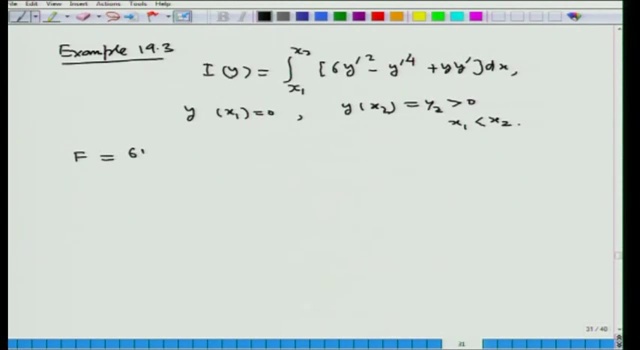 Edit View Insert Actions Tools Help
Example 19.3
I(y) = ∫_{x₁}^{x₂} [6y'² - y'⁴ + yy'] dx,
y (x₁) = 0 , y(x₂) = y₂ > 0
x₁ < x₂.
F = 6
31 / 40
31